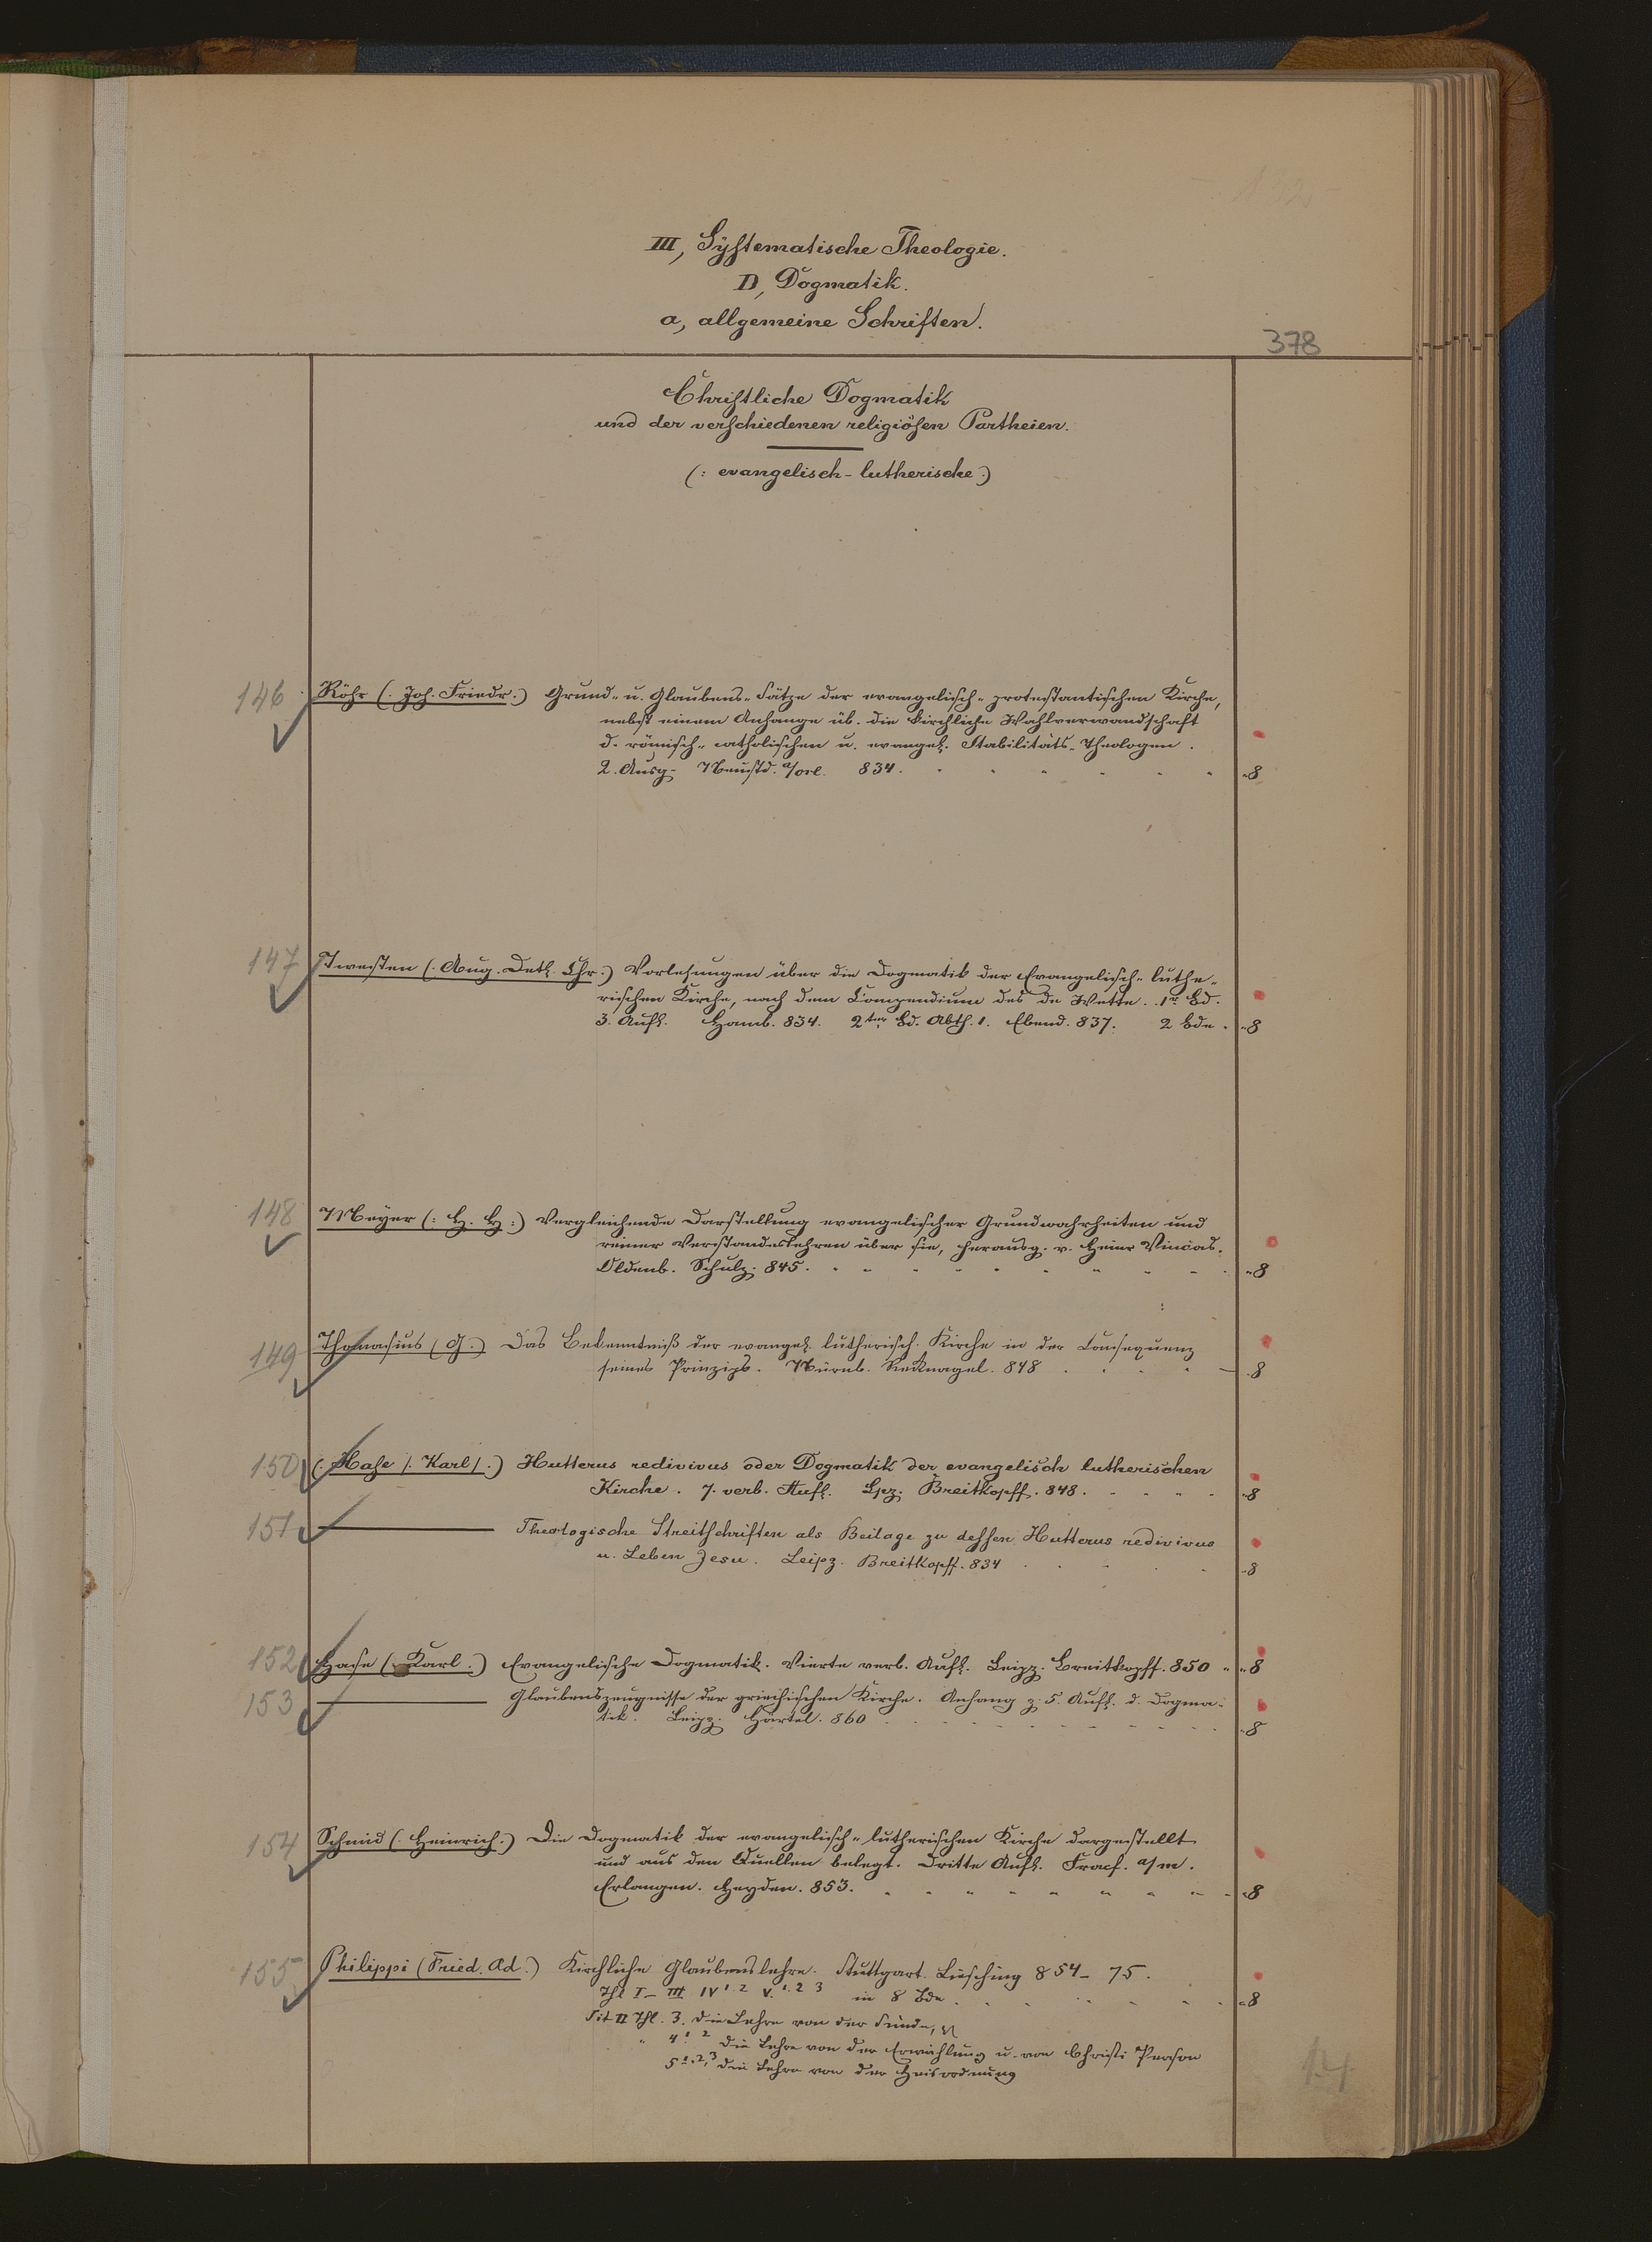 III, Systematische Theologie.
D, Dogmatik.
a, allgemeine Schriften.
378
Christliche Dogmatik
und der verschiedenen religiösen Partheien.
(: evangelisch-lutherische :)
146 Röhr (: Joh. Friedr. :) Grund- u. Glaubens-Sätze der evangelisch-protestantischen Kirche,
nebst einem Anhange üb. die kirchliche Wahlverwandschaft
d. römisch-catholischen u. evangel. Stabilitäts-Theologen.
2. Ausg. Neustd. a/Orl. 834. 8
147 Twesten (: Aug. Detl. Chr. :) Vorlesungen über die Dogmatik der Evangelisch-luthe-
rischen Kirche, nach dem Compendium des de Wette. 1r Bd.
3. Aufl. Hamb. 834. 2ter Bd. Abth. 1. Ebend. 837. 2 Bde. 8
148 Meyer (: H. H :) Vergleichende Darstellung evangelischer Grundwahrheiten und
reiner Verstandeslehren über sie, herausg. v. Heinr
Oldenb. Schulz. 845. 8
149 Thomasius (G.) Das Bekenntniß der evangel. lutherisch. Kirche in der Consequenz
seines Prinzips. Nürnb. Recknagel. 848 8
150 (: Hase /: Karl /:) Hutterus redivivus oder Dogmatik der evangelisch lutherischen
Kirche. 7. verb. Aufl. Lpz. Breitkopff. 848. 8
151 Theologische Streitschriften als Beilage zu dessen Hutterus redivivus
u. Leben Jesu. Leipz. Breitkopff. 834 8
152 Hase (: Karl :) Evangelische Dogmatik. Vierte verb. Aufl. Leipz. Breitkopff. 850 8
153 Glaubenszeugnisse der griechischen Kirche. Anhang z. 5. Aufl. d. Dogma-
tik. Leipz. Härtel. 860 8
154 Schmid (: Heinrich :) Die Dogmatik der evangelisch-lutherischen Kirche dargestellt
und aus den Quellen belegt. Dritte Aufl. Fracf. a/m.
Erlangen. Heyden. 853. 8
155 Philippi (Fried. Ad.) Kirchliche Glaubenslehre. Stuttgart. Liesching 854-75.
Thl I-III IV 1.2 V. 1.2 3 in 8 Bde. 8
Thl. 3. die Lehre von der Sünde,
" 4 1. 2 die Lehre von der Erwählung u. von Christi Person
5 1. 2, 3 die Lehre von der Heilsordnung
14